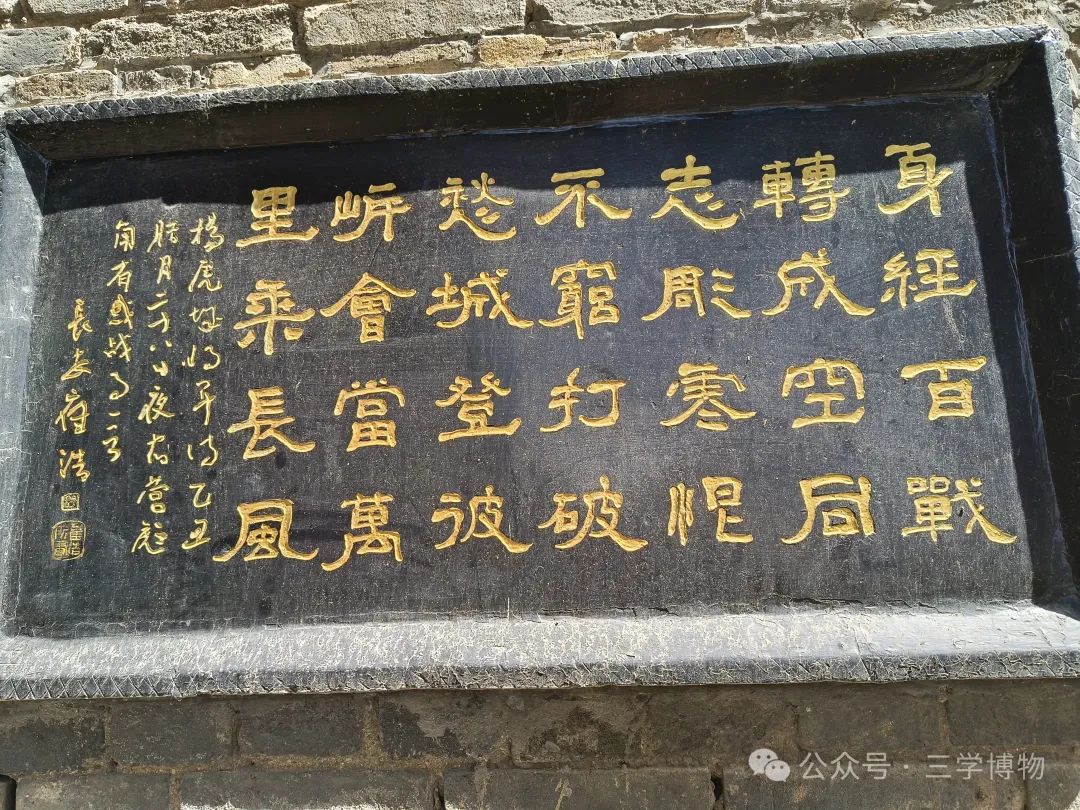 身經百戰
轉成空同
志彫零恨
不窮打破
愁城登彼
岸會當萬
里乘長風
楊虎城將軍詩乙丑
腊月二十八日夜宿營
有感战事一首
長安浩
公众号·三学博物